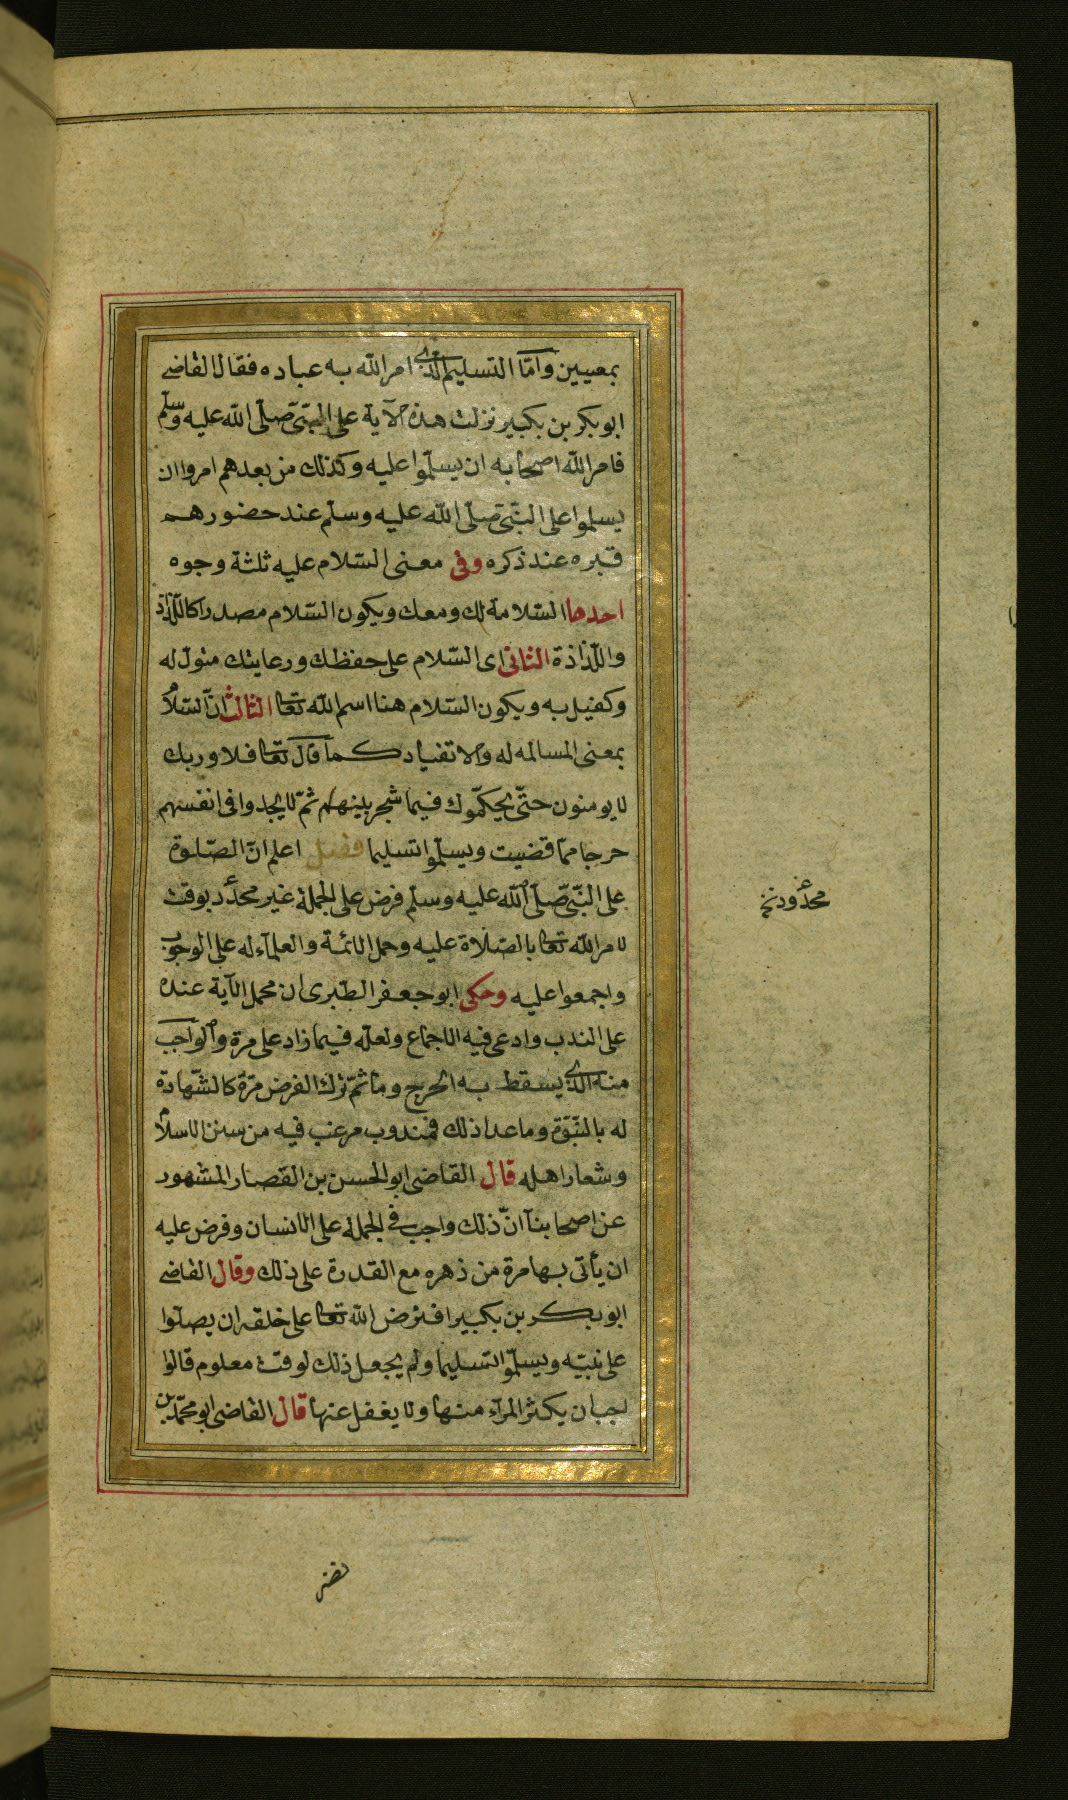 بمعيين وامّا التسليم الّذى امر الله به عباده فقال القاضى
ابو بكر بن بكير نزلت هذه الآية على النبىّ صلّى الله عليه وسلّم
فامر الله اصحابه ان يسلّموا عليه وكذلك من بعدهم امروا ان
يسلموا على النّبىّ صلّى الله عليه وسلّم عند حضورهم
قبره عند ذكره وفى معنى السّلام عليه ثلثة وجوه
احدها السّلامة لك ومعك ويكون السّلام مصدرا كاللّذاذ
واللّذاذة الثانى اى السّلام على حفظك ورعايتك متول له
وكفيل به ويكون السّلام هنا اسم الله تعا الثالث انّ السّلام
بمعنى المسالمه له والانقياد كما قال تعا فلا وربك
لا يومنون حتّى يحكّموك فيما شجر بينهم ثمّ لا يجدوا فى انفسهم
حرجا ممّا قضيت ويسلّموا تسليما فصل اعلم انّ الصّلوة
على النّبىّ صلّى الله عليه وسلّم فرض على الجملة غير محدّد بوقت
لامر الله تعا بالصّلاة عليه وحمل الائمة والعلمآء له على الوجوب
واجمعوا عليه وحكى ابو جعفر الطّبرى ان محمل الآية عنده
على الندب وادعى فيه الاجماع ولعلّه فيما زاد على مرة والواجب
منه الّذى يسقط به الحرج وماثم ترك الفرض مرّة كالشّهادة
له بالنّبوّة وما عدا ذلك فمندوب مرغب فيه من سنن الاسلام
وشعار اهله قال القاضى ابو الحسن بن القصار المشهور
عن اصحابنا انّ ذلك واجب فى الجملة على الانسان وفرض عليه
ان يأتى بها مرة من دهره مع القدرة على ذلك وقال القاضى
ابو بكر بن بكير افترض الله تعا على خلقه ان يصلّوا
على نبيّه ويسلّموا تسليما ولم يجعل ذلك لوقت معلوم فالوا
جب ان يكثر المرآء منها ولا يغفل عنها قال القاضى ابو محمّد بن
نصر